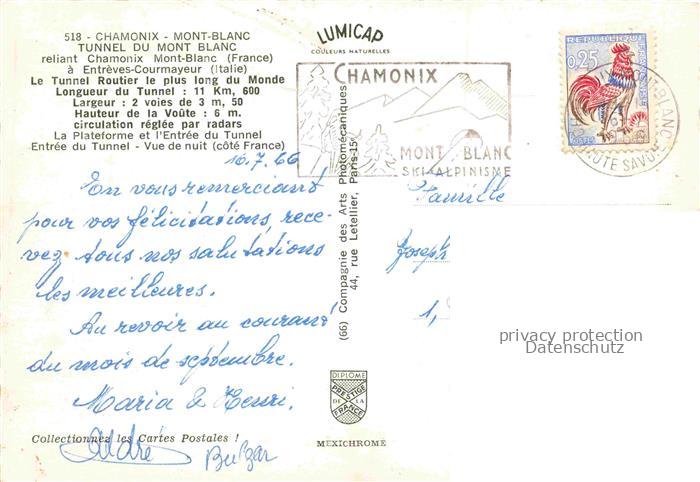 518 - CHAMONIX - MONT-BLANC
TUNNEL DU MONT BLANC
reliant Chamonix Mont-Blanc (France)
à Entrèves-Courmayeur (Italie)
Le Tunnel Routier le plus long du Monde
Longueur du Tunnel : 11 Km, 600
Largeur : 2 voies de 3 m, 50
Hauteur de la Voûte : 6 m.
circulation réglée par radars
La Plateforme et l'Entrée du Tunnel
Entrée du Tunnel - Vue de nuit (côté France)
10.7.66
En vous remerciant
pour vos félicitations, rece-
vez tous nos salutations
les meilleures.
Au revoir au courant
du mois de septembre.
Maria & Henri.
Collectionnez les Cartes Postales !
André
LUMICAP
COULEURS NATURELLES
CHAMONIX
MONT BLANC
SKI-ALPINISME
(66) Compagnie des Arts Photomécaniques
44, rue Letellier, Paris-15e
DIPLOME
PRESTIGE
DE LA
FRANCE
MEXICHROME
REPUBLIQUE FRANCAISE
0,25
POSTES
CHAMONIX-MONT-BLANC
HAUTE SAVOIE
Famille
Joseph
1,
privacy protection
Datenschutz